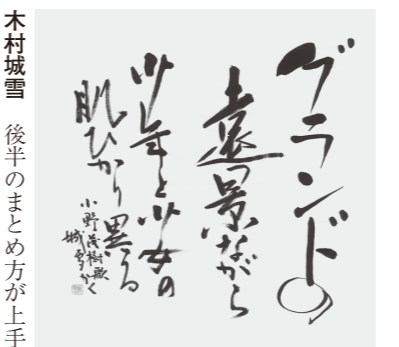 グランドの
遠景ながら
少年と少女の
肌ひかり異る
小野茂樹歌
城雪かく
木村城雪　後半のまとめ方が上手